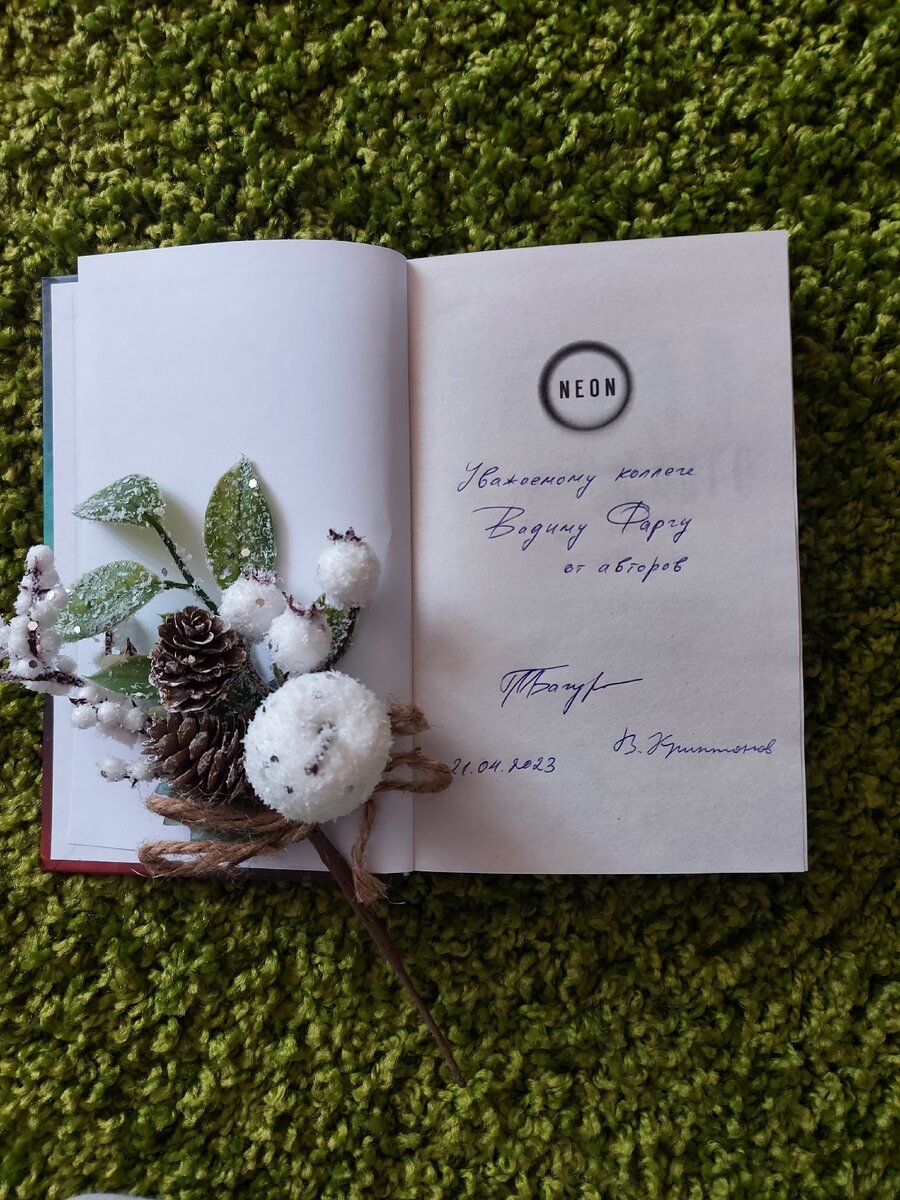 NEON
Уважаемому коллеге
Вадиму Фаргу
от авторов
ТБагур
В. Криптонов
21.04.2023